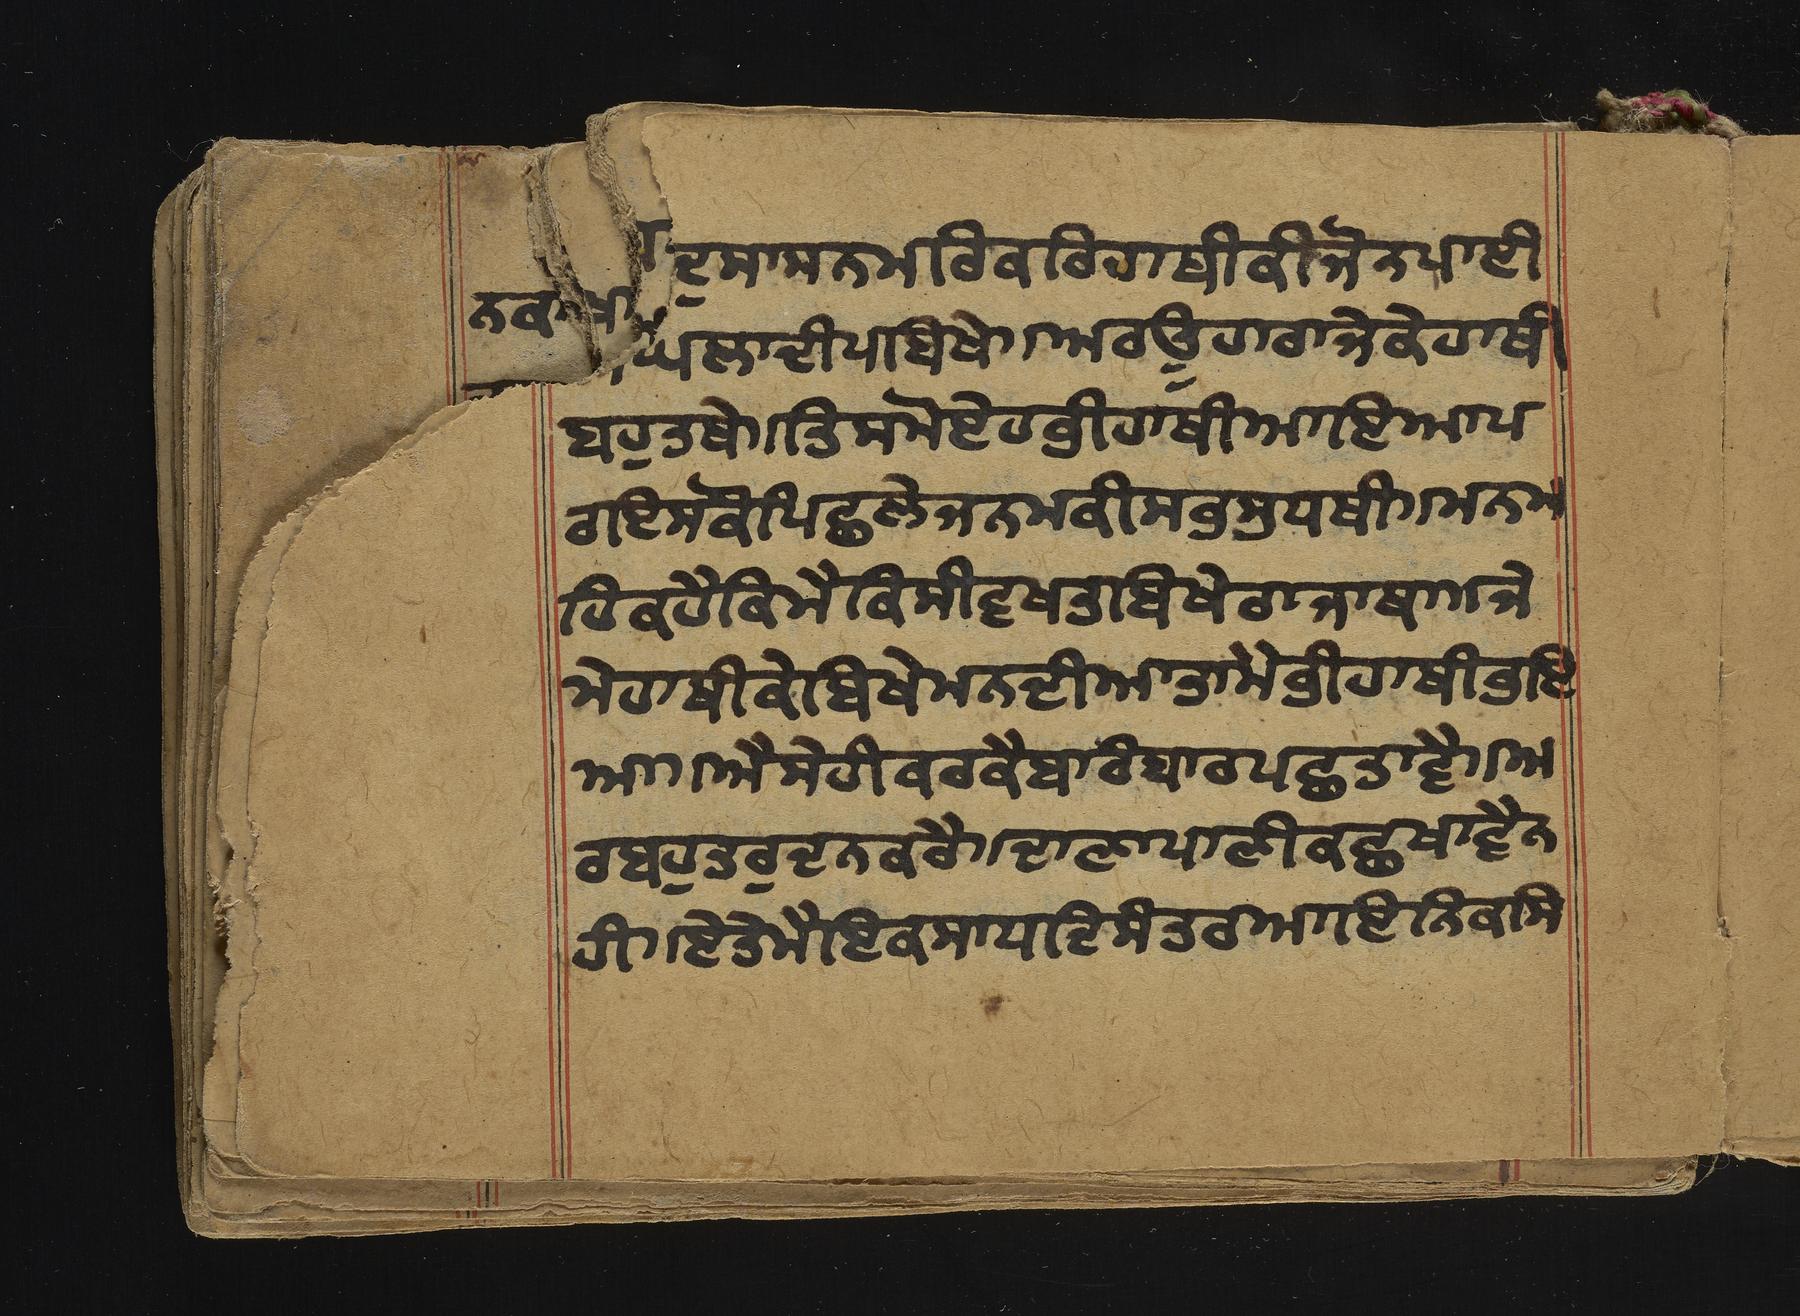 ਦੁਸਾਸਨਮਰਿਕਰਿਹਾਥੀਕੀਜੋਨਪਾਈ
ਘਲਾਦੀਪਬਿਖੇ।ਅਰਉੁਹਾਰਾਜੇਕੇਹਾਥੀ
ਬਹੁਤਥੇ।ਤਿਸਮੋਏਹਭੀਹਾਥੀਆਇਆਪ
ਰਇਸਕੋਪਿਛਲੇਜਨਮਕੀਸਭਸੁਧਥੀ।ਮਨਮ
ਹਿਕਹੈਕਿਮੈਕਿਸੀਵੁਖਤਬਿਖੇਰਾਜਾਥਾ।ਜੋ
ਮੇਹਾਥੀਕੇਬਿਖੇਮਨਦੀਆਤਾਮੇਭੀਹਾਥੀਭਇ
ਆ।ਐਸੇਹੀਕਰਕੈਬਾਰਿਬਾਰਪਛਤਾਵੈ।ਅ
ਰਬਹੁਤਰੁਦਨਕਰੈ।ਦਾਣਾਪਾਣੀਕਛੁਖਾਵੈਨ
ਹੀ।ਏਤੇਮੈਇਕਸਾਧਦਿਸੰਤਰਆਇਨਿਕਸਿ